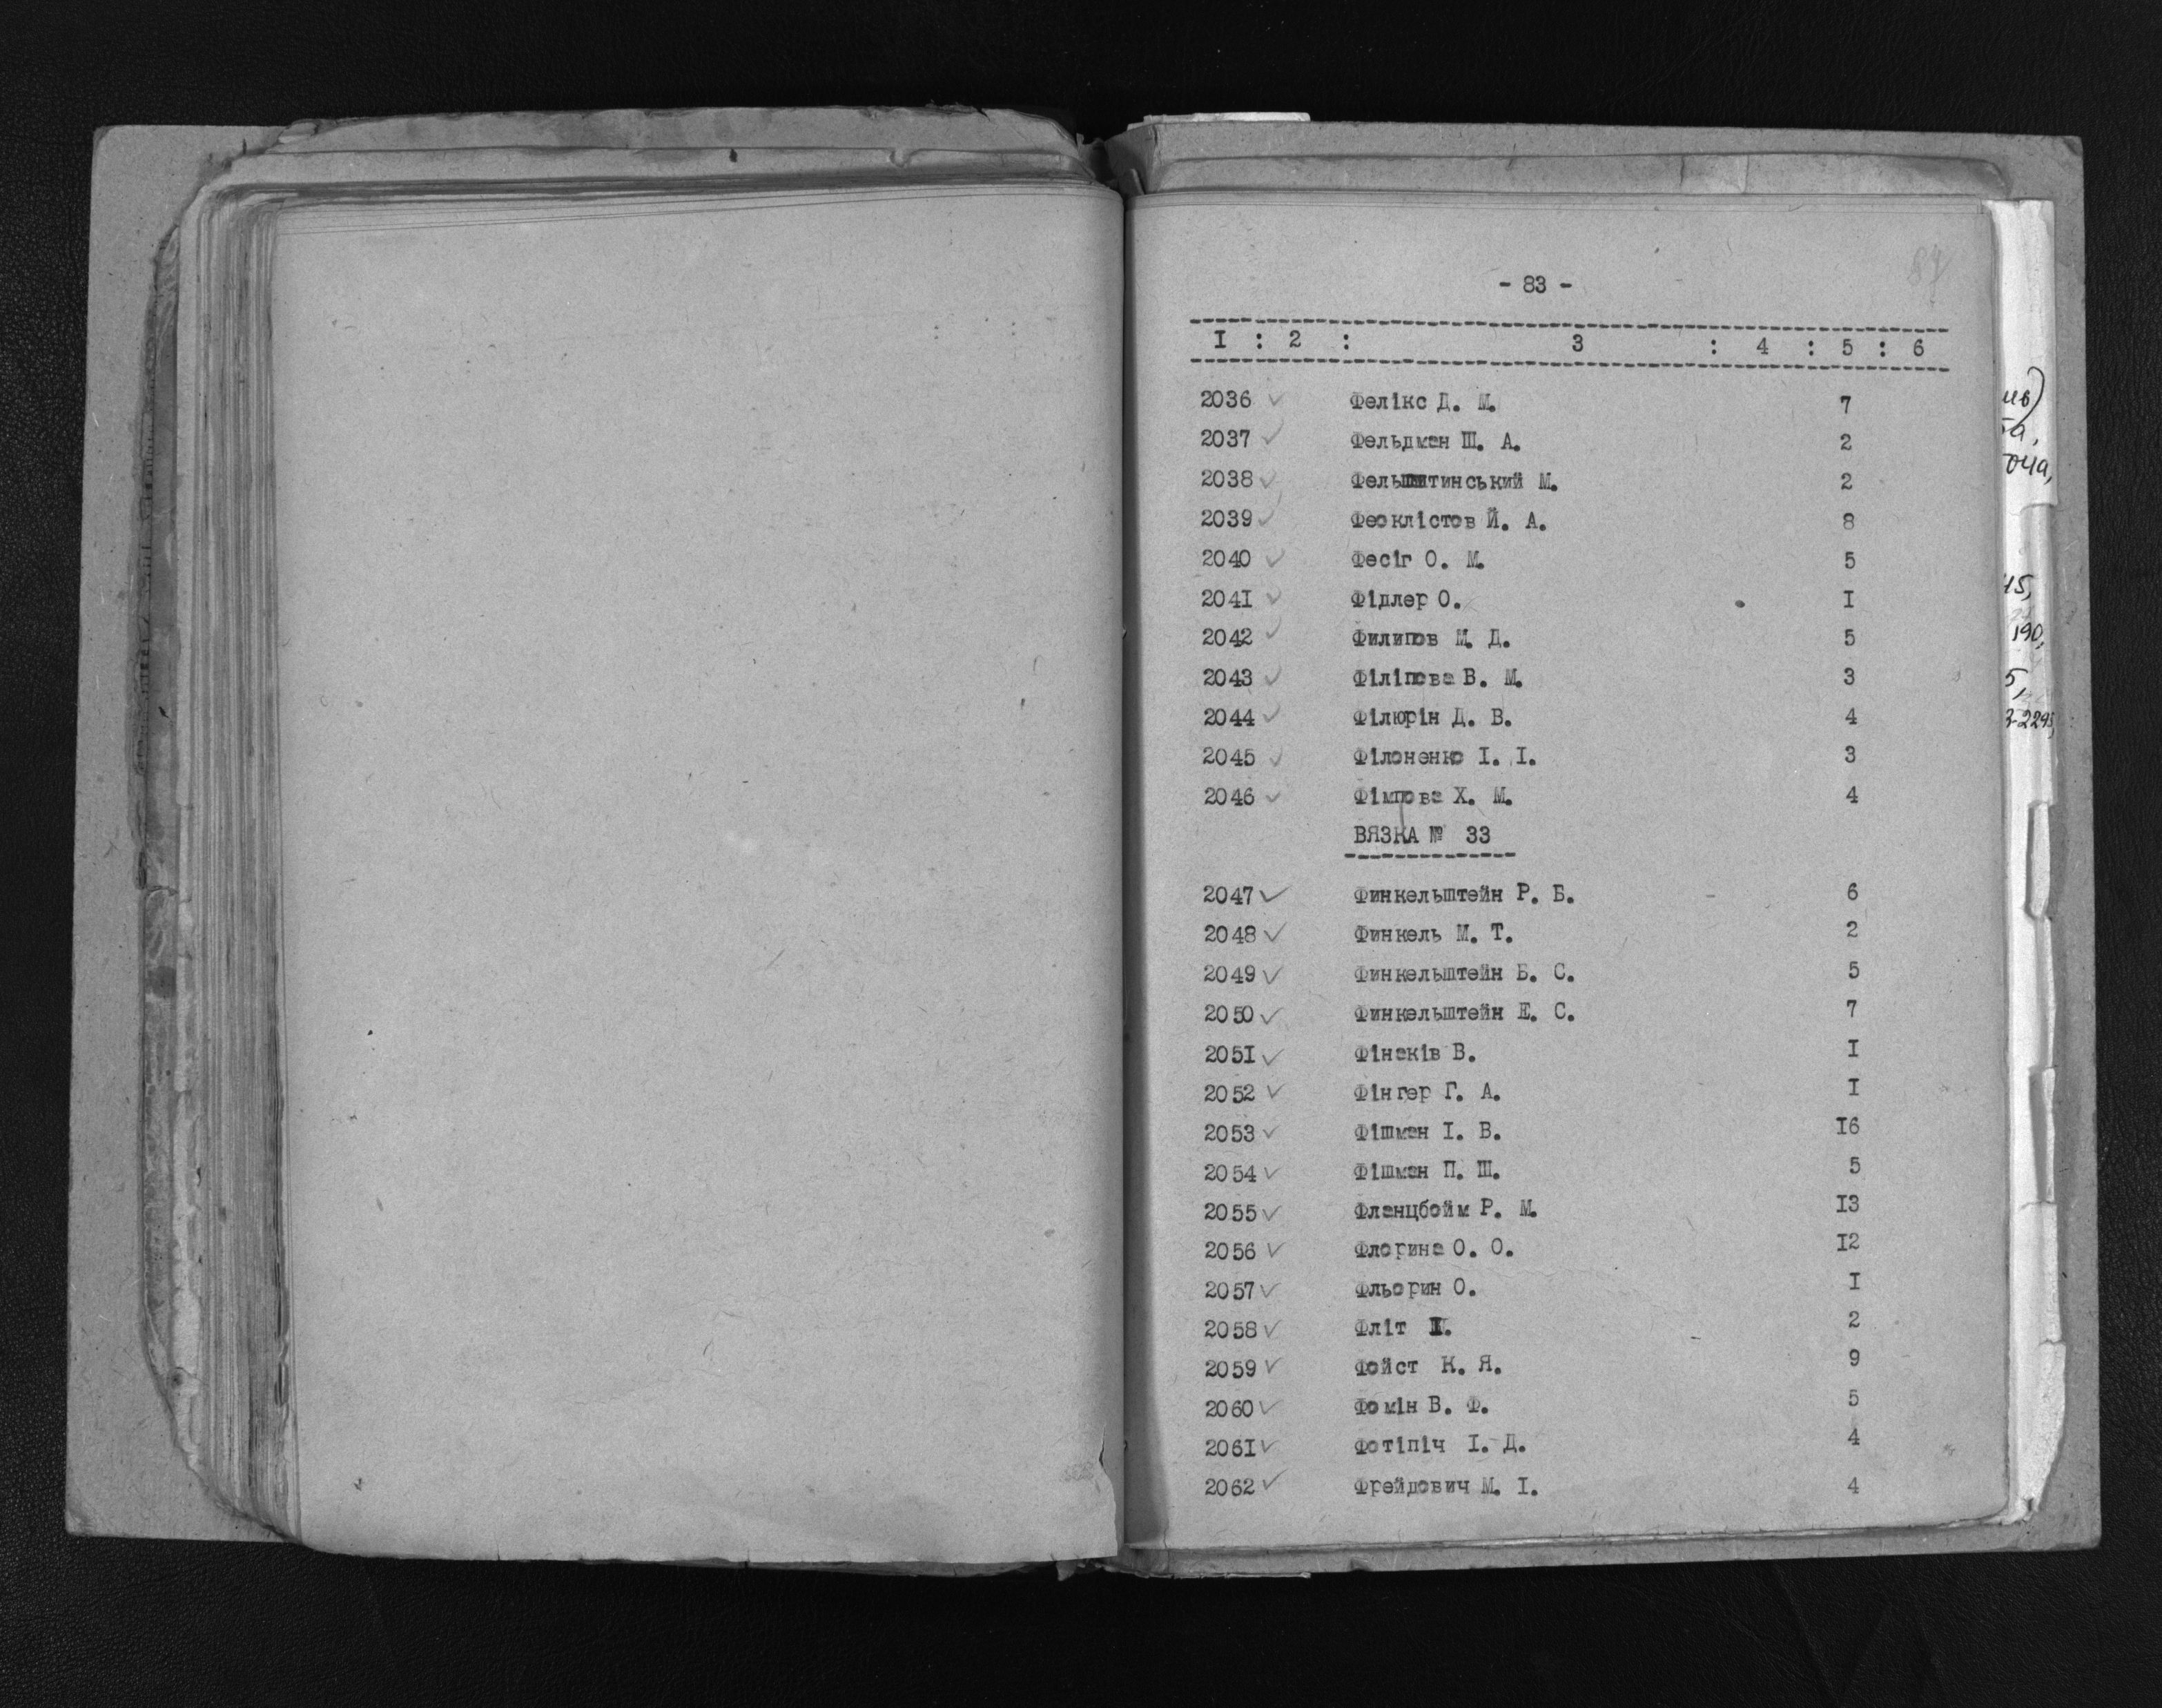 - 83 -
I : 2 : 3 : 4 : 5 : 6
2036 ✓ Фелікс Д. М. 7
2037 ✓ Фельдман Ш. А. 2
2038 ✓ Фельштинський М. 2
2039 ✓ Феоклістов Й. А. 8
2040 ✓ Фесіг О. М. 5
2041 ✓ Фідлер О. I
2042 ✓ Филипов М. Д. 5
2043 ✓ Філіпова В. М. 3
2044 ✓ Філюрін Д. В. 4
2045 ✓ Філоненко І. І. 3
2046 ✓ Фімпова Х. М. 4
ВЯЗКА № 33
2047 ✓ Финкельштейн Р. Б. 6
2048 ✓ Финкель М. Т. 2
2049 ✓ Финкельштейн Б. С. 5
2050 ✓ Финкельштейн Е. С. 7
2051 ✓ Фінаків В. I
2052 ✓ Фінгер Г. А. I
2053 ✓ Фішман І. В. I6
2054 ✓ Фішман П. Ш. 5
2055 ✓ Фланцбойм Р. М. I3
2056 ✓ Флорина О. О. I2
2057 ✓ Фльорин О. I
2058 ✓ Фліт 2
2059 ✓ Фойст К. Я. 9
2060 ✓ Фомін В. Ф. 5
2061 ✓ Фотіпіч І. Д. 4
2062 ✓ Фрейдович М. І. 4
190,